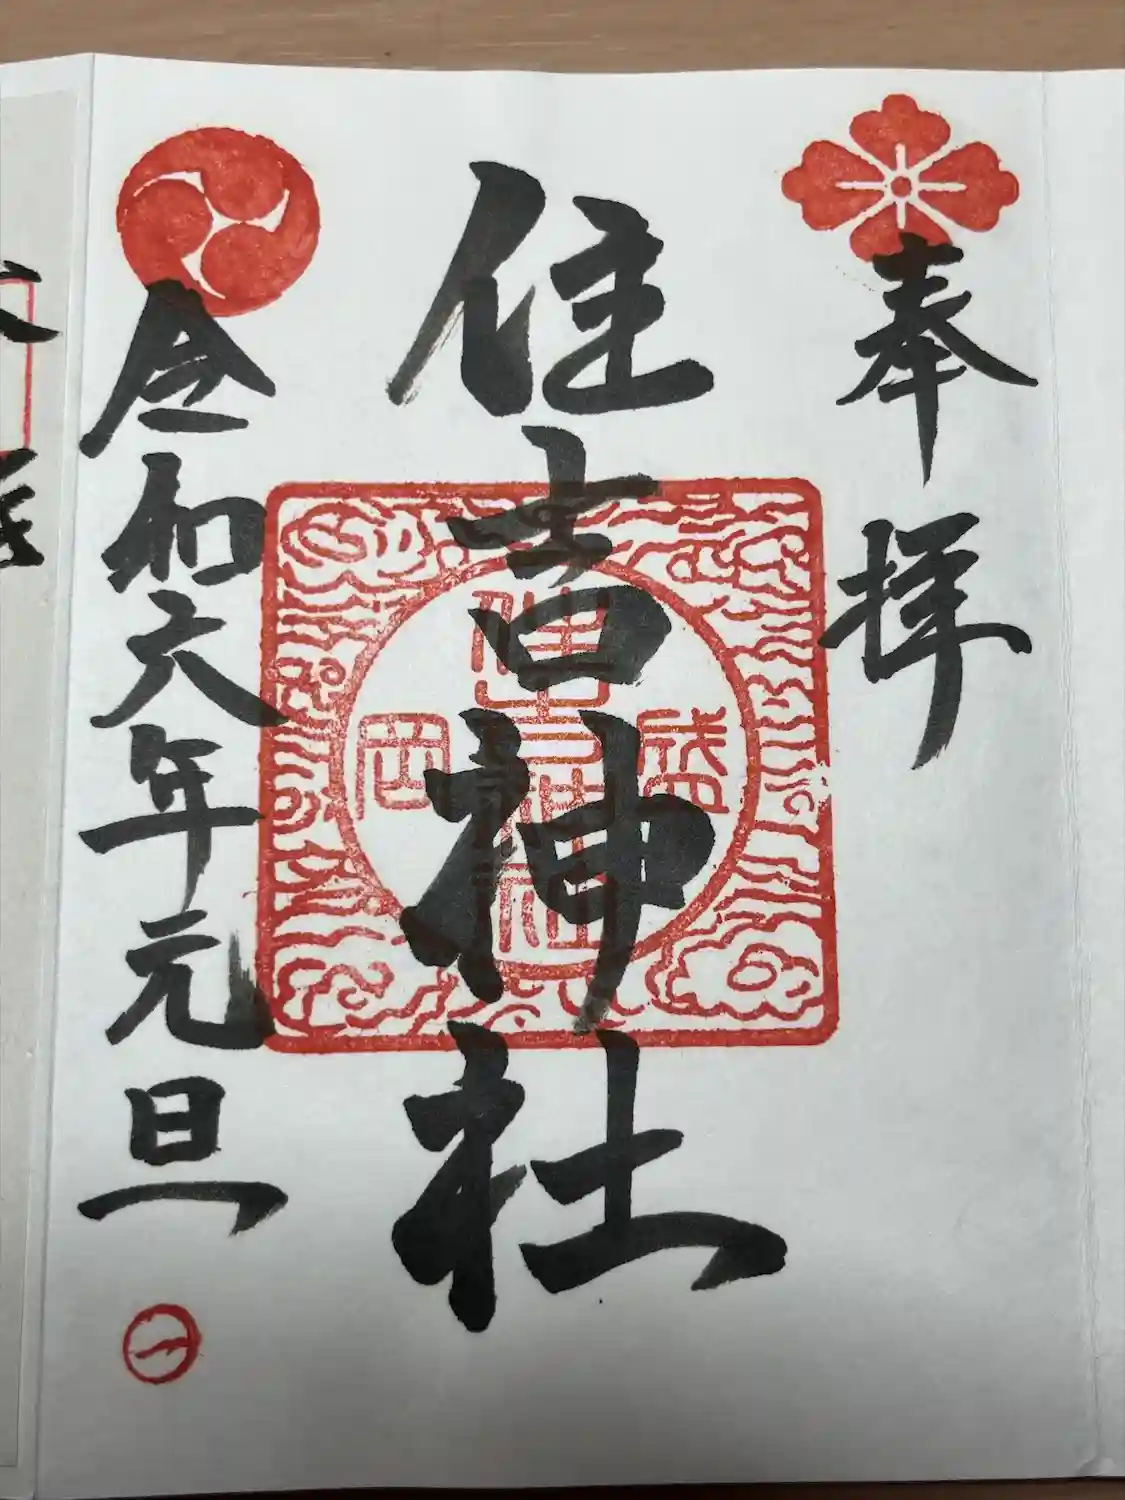 奉拝
住吉神社
盛岡
住吉神社
令和六年元旦
一